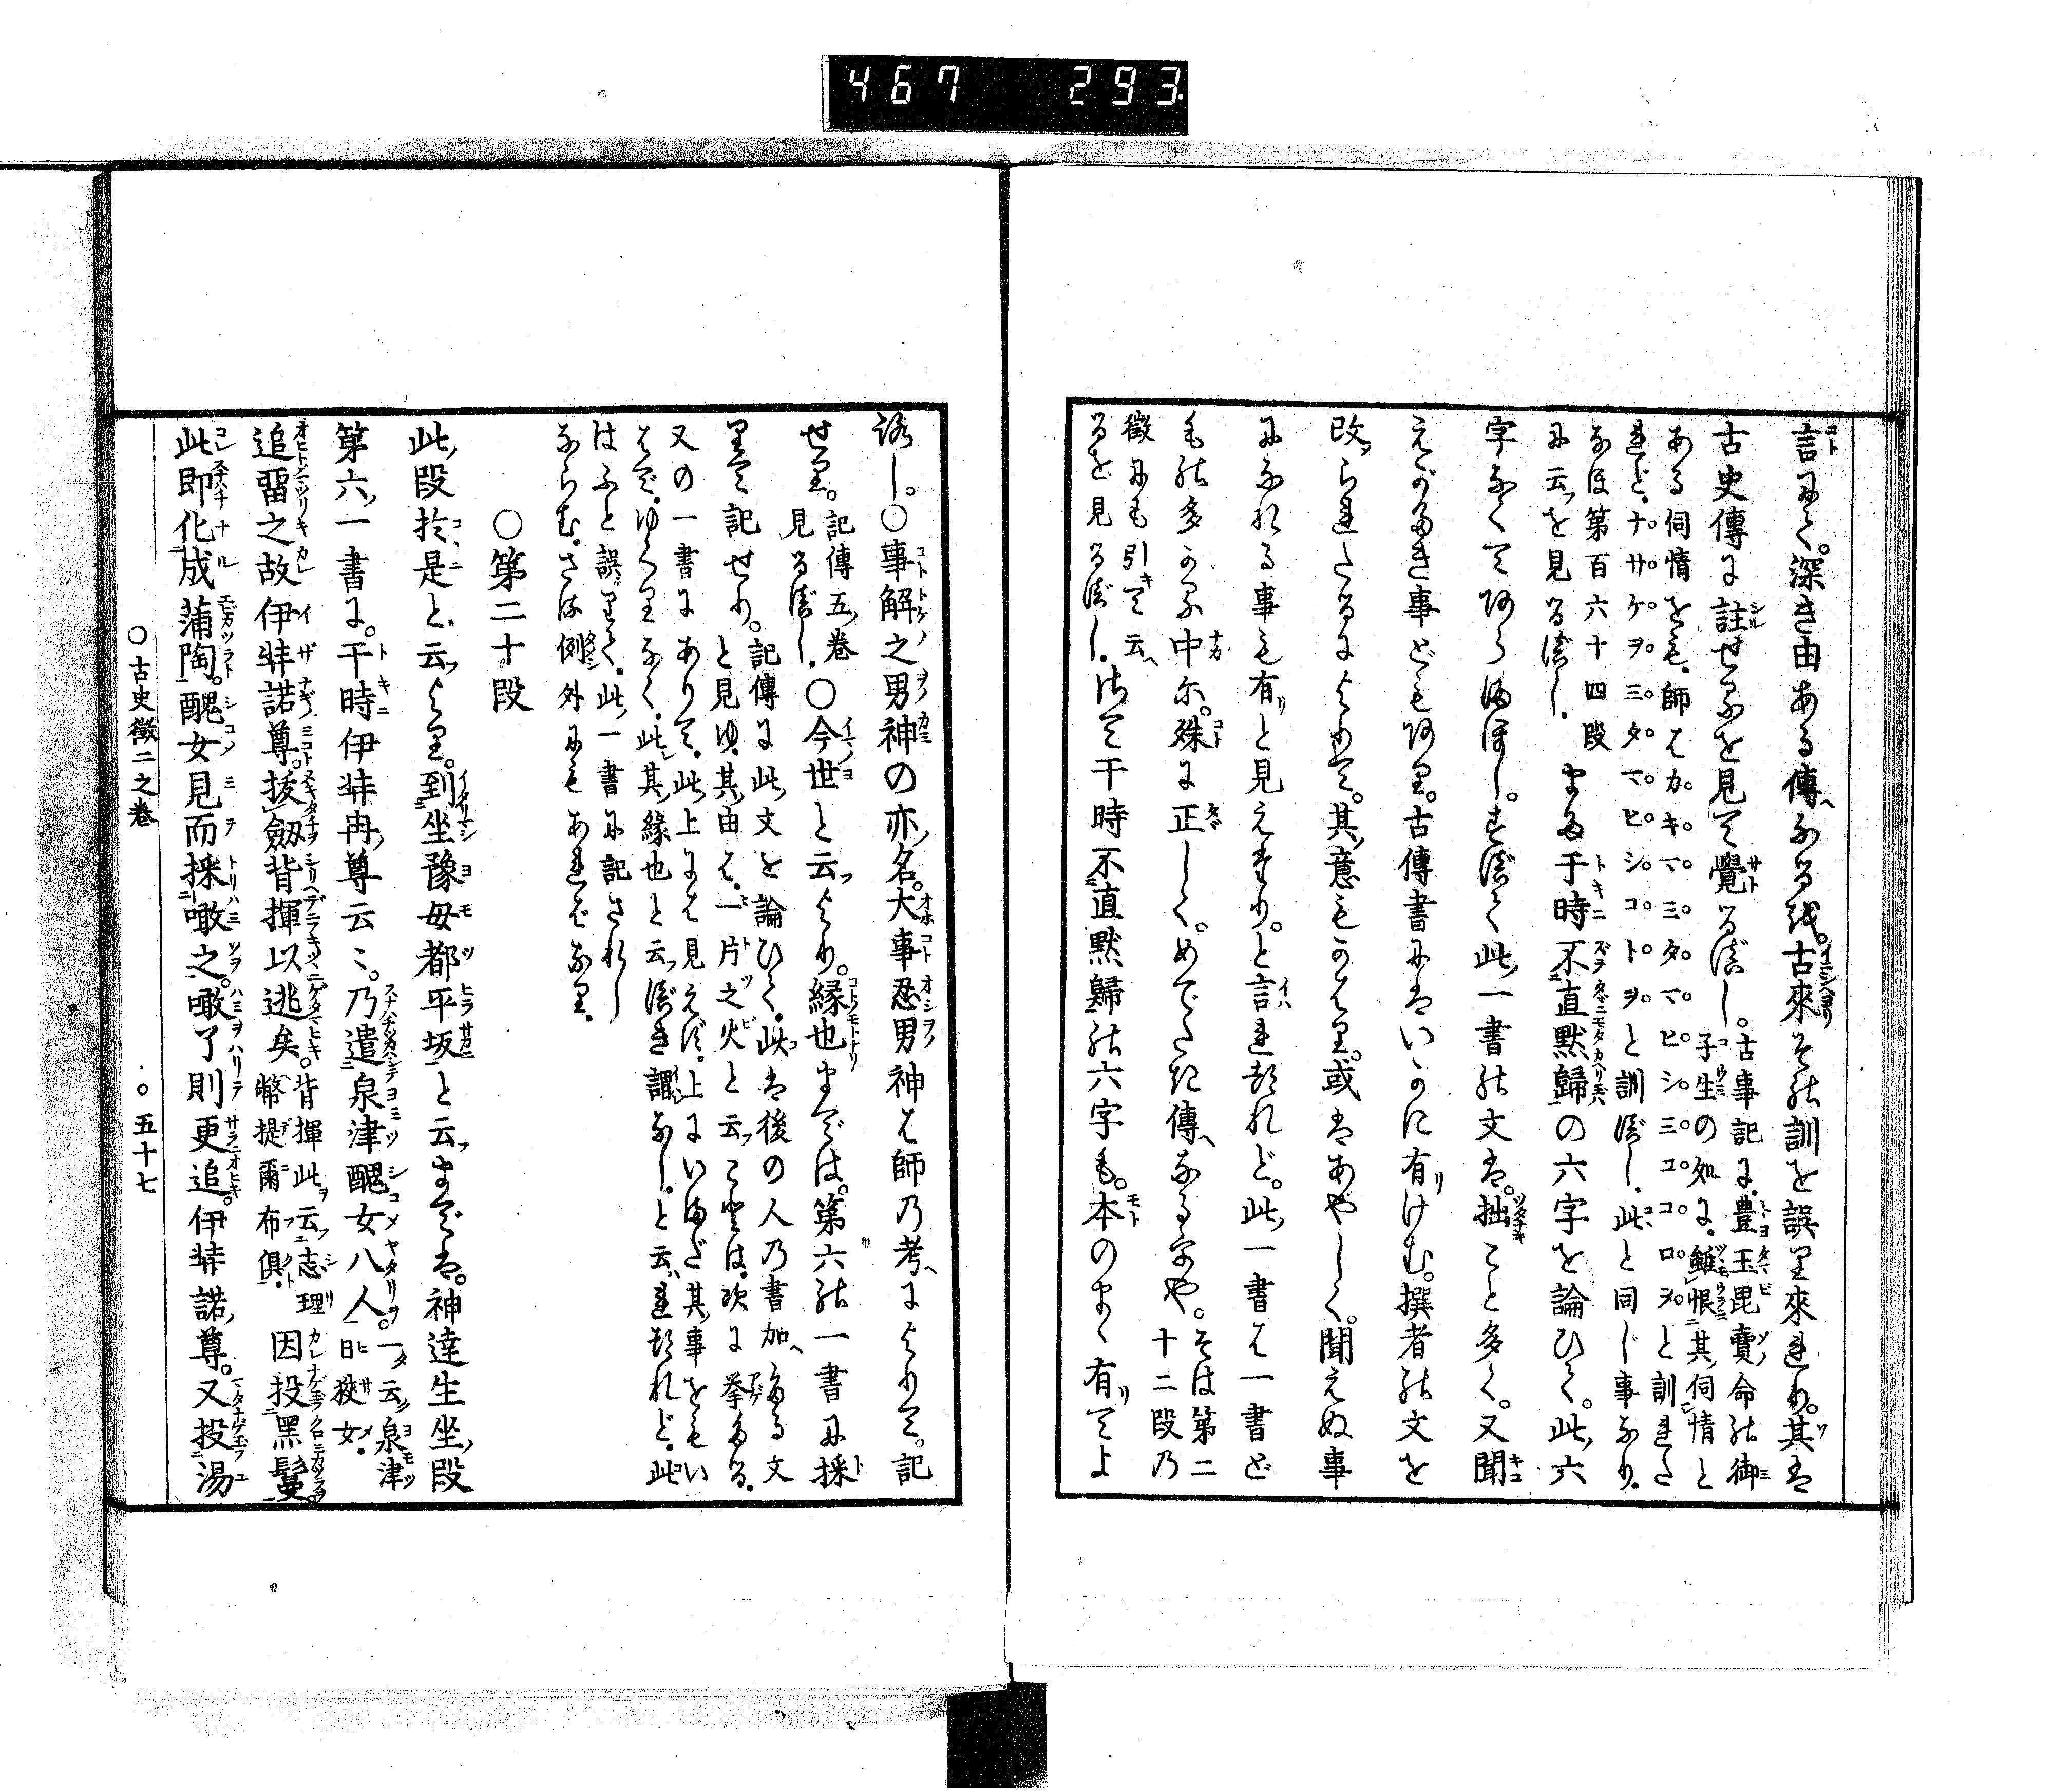 467 293
言にて。深き由ある傳なるを。古來その訓を誤り來れり。其は
古史傳に註せるを見て覺るべし。古事記に。豊玉毘賣命の御
子生の処に。雖恨其伺情と
ある伺情をも。師はカキマミタマヒシミココロヲと訓れた
れど。ナサケヲミタマヒシコトヲと訓べし。此と同じ事なり。
なほ第百六十四段
に云を見るべし。また于時不直默歸の六字を論ひて。此六
字なくてあらまほし。すべて此一書の文は。拙きこと多く。又聞
えがたき事どもあり。古傳書にはいかに有けむ。撰者の文を
改られたるによりて。其意もかはり。或はあやしく。聞えぬ事
になれる事も有と見えたり。と言れたれど。此一書は一書ど
もの多かる中に。殊に正しく。めでたき傳なる字や。そは第二
十二段の
徵にも引て云
るを見るべし。故て于時不直默歸の六字も。本のまゝ有てよ
ろし。○事解之男神の亦名。大事忍男神は師の考によりて。記
せり。記傳五巻
見るべし。○今世と云より。緣也までは。第六の一書に採
りて記せり。記傳に此文を論ひて。此は後の人の書加たる文
と見ゆ。其由は。一片之火と云ことは。次に擧たる。
又の一書にありて。此上には見えず。上にいまだ其事をもい
はで。ゆくりなく。此其緣也と云べき謂なし。と云れたれど。此
はふと誤りて。此一書に記されし
ならむ。さる例外にもあればなり。
○第二十段
此段於是と云より。到坐豫母都平坂と云までは。神達生坐段
第六一書に。于時伊弉冉尊云々。乃遣泉津醜女八人。一云泉津
日狹女。
追留之故伊弉諾尊。拔劔背揮以逃矣。背揮此云志理
幣提爾布倶。因投黑鬘
此即化成蒲陶。醜女見而採噉之。噉了則更追。伊弉諾尊。又投湯
○古史徵二之巻 ○五十七